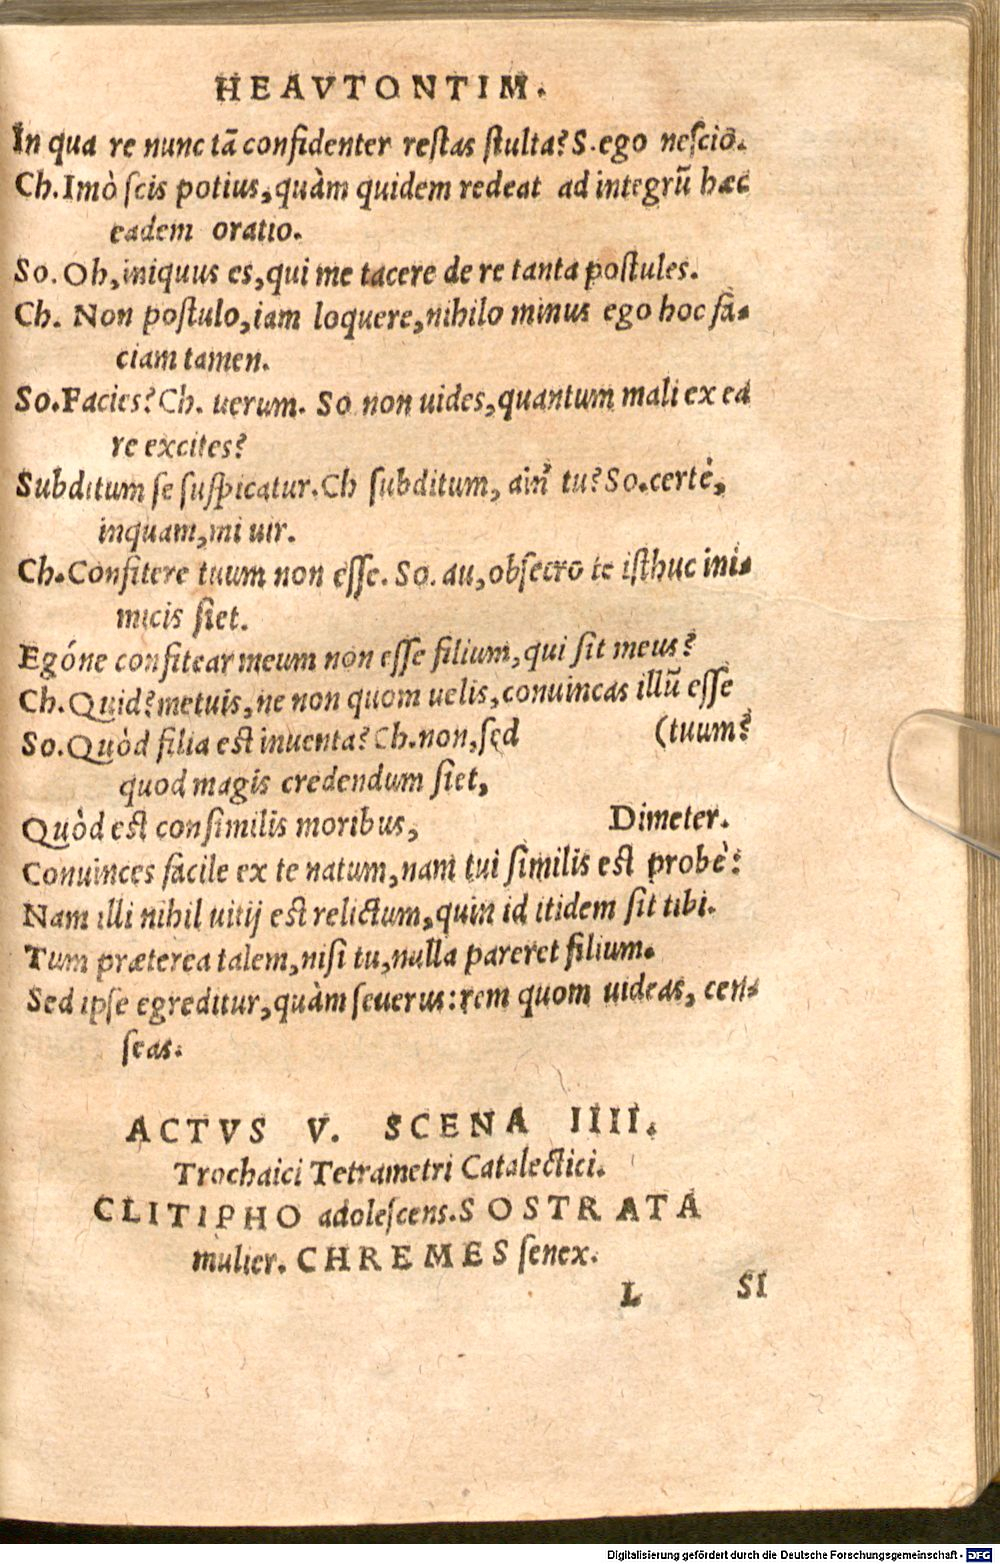 HEAVTONTIM.
In qua re nunc tã confidenter restas stulta? S.ego nesciõ.
Ch.Imò scis potius, quàm quidem redeat ad integrũ hæc
eadem oratio.
So. Oh, iniquus es, qui me tacere de re tanta postules.
Ch. Non postulo, iam loquere, nihilo minus ego hoc fa-
ciam tamen.
So.Facies? Ch. uerum. So non uides, quantum mali ex ea
re excites?
Subditum se suspicatur.Ch subditum, ain' tu? So.certè,
inquam, mi uir.
Ch.Confitere tuum non esse. So. au, obsecro te isthuc ini-
micis siet.
Egóne confitear meum non esse filium, qui sit meus?
Ch. Quid? metuis, ne non quom uelis, conuincas illũ esse
So. Quòd filia est inuenta? Ch.non, sed (tuum?
quod magis credendum siet,
Quòd est consimilis moribus, Dimeter.
Conuinces facile ex te natum, nam tui similis est probè:
Nam illi nihil uitij est relictum, quin id itidem sit tibi.
Tum præterea talem, nisi tu, nulla pareret filium.
Sed ipse egreditur, quàm seuerus: rem quom uideas, cen-
seas.
ACTVS V. SCENA IIII.
Trochaici Tetrametri Catalectici.
CLITIPHO adolescens. SOSTRATA
mulier. CHREMES senex.
L SI
Digitalisierung gefördert durch die Deutsche Forschungsgemeinschaft - DFG